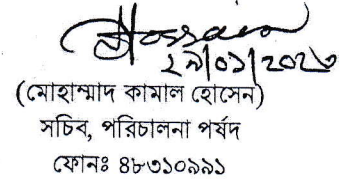 Hossain
২৯/০১/২০২৩
(মোহাম্মাদ কামাল হোসেন)
সচিব, পরিচালনা পর্ষদ
ফোনঃ ৪৮৩১০৯৯১